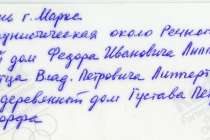 нь г. Маркс
унистическая около Речног
й дом Федора Ивановича Липп
тца Влад. Петровича Липперт
одеревянный дом Густава Пе
орфа